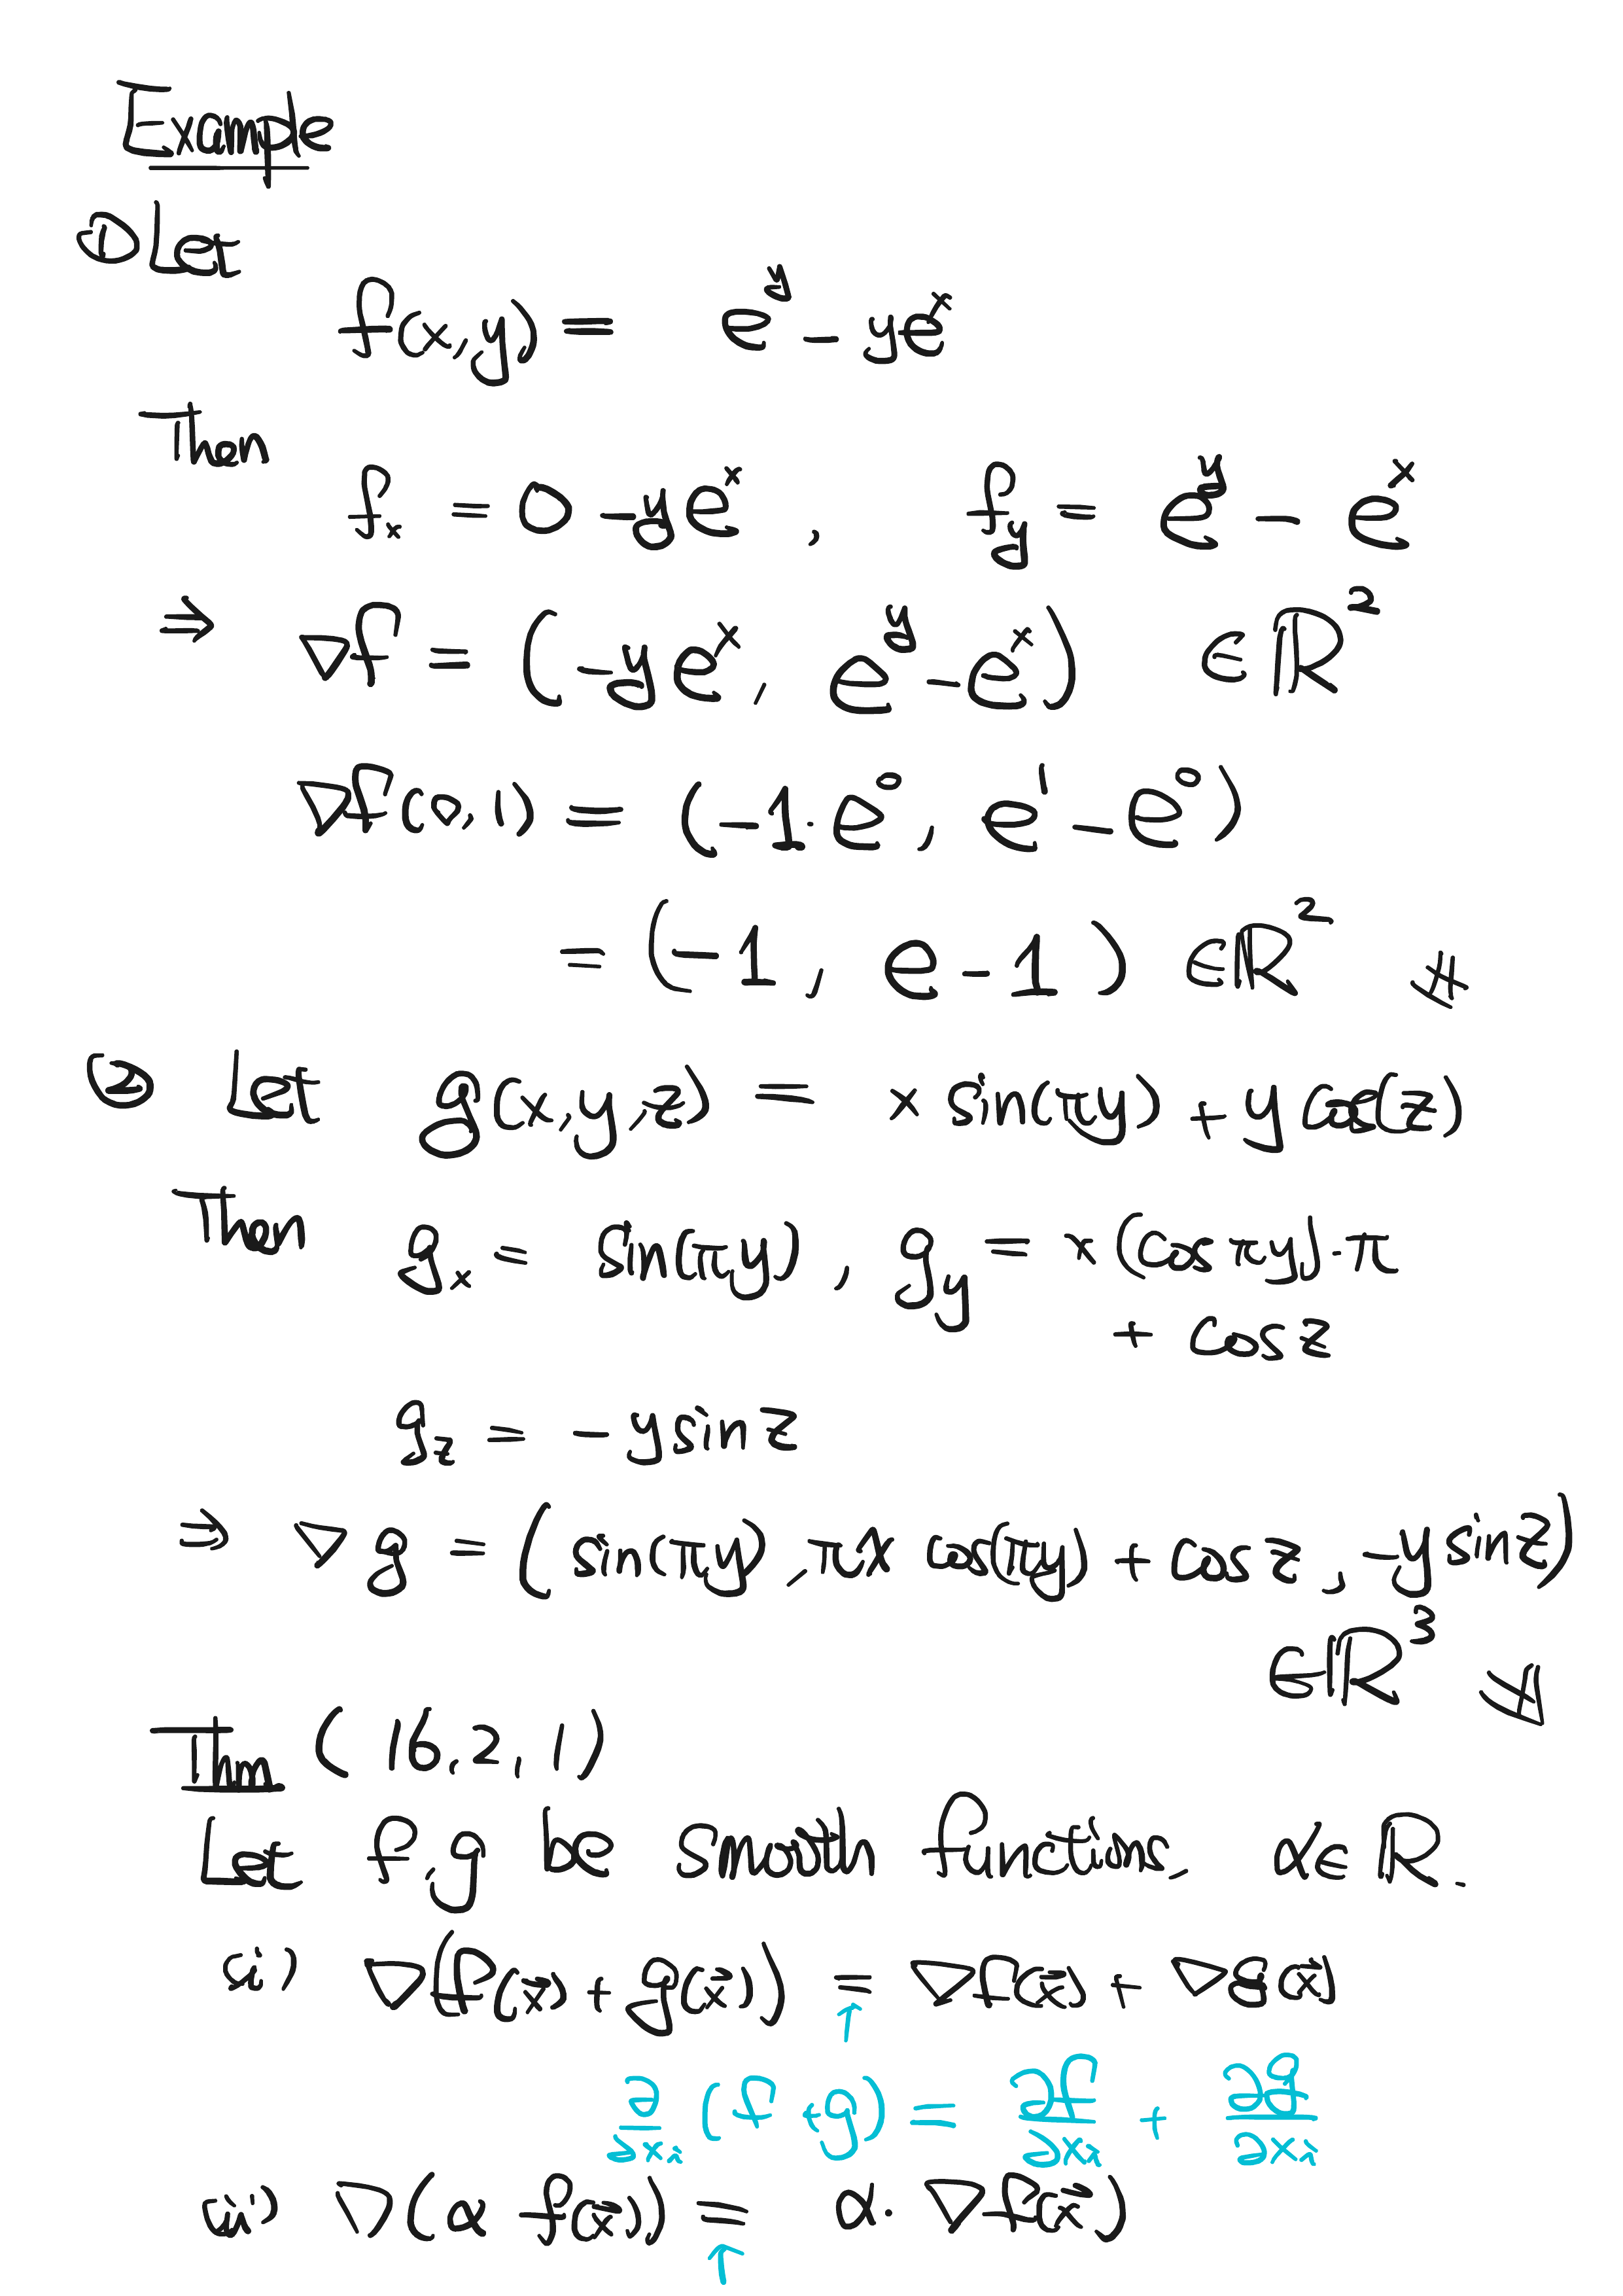 Example
① Let
f(x,y) = e^y - ye^x
Then
f_x = 0 - ye^x , f_y = e^y - e^x
⇒ ∇f = (-ye^x, e^y - e^x) ∈ ℝ^2
∇f(0,1) = (-1·e^0, e^1 - e^0)
= (-1, e - 1) ∈ ℝ^2 #
② Let g(x,y,z) = x sin(πy) + y cos(z)
Then g_x = sin(πy), g_y = x (cos πy)·π
+ cos z
g_z = - y sin z
⇒ ∇g = (sin(πy), πx cos(πy) + cos z, -y sin z)
∈ ℝ^3 #
Thm (16.2.1)
Let f,g be smooth functions. α ∈ ℝ.
(i) ∇(f(x⃗) + g(x⃗)) = ∇f(x⃗) + ∇g(x⃗)
↑
∂/∂x_i (f + g) = ∂f/∂x_i + ∂g/∂x_i
(ii) ∇(α f(x⃗)) = α· ∇f(x⃗)
↑